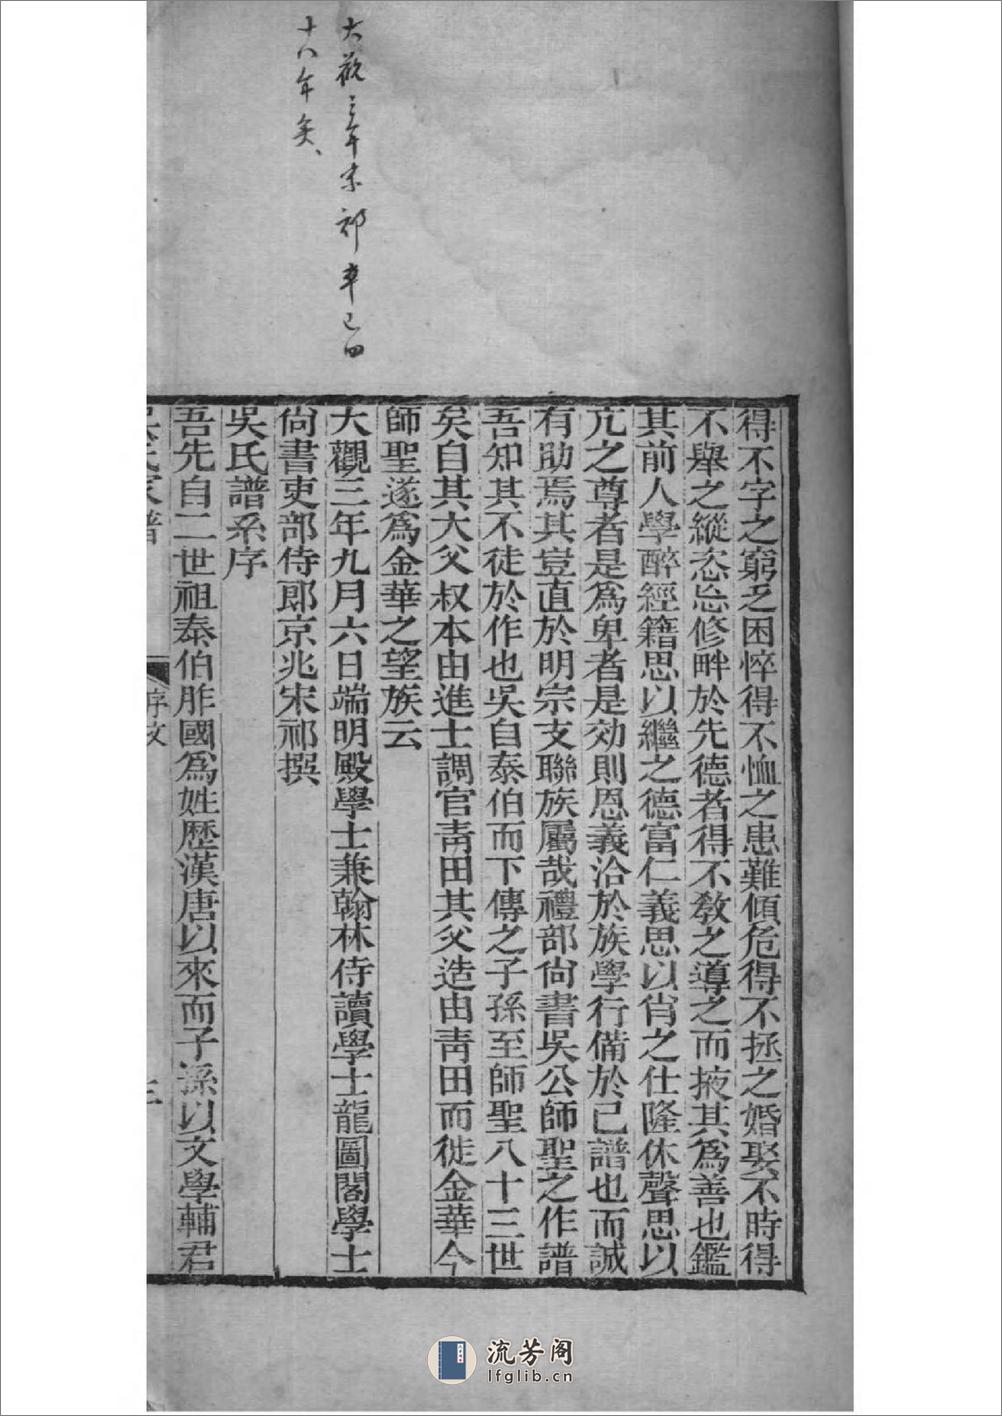 大觀三年宋祁卒已四
十八年矣、
得不字之窮乏困悴得不恤之患難傾危得不拯之婚娶不時得
不舉之縱恣忘修畔於先德者得不敎之導之而掖其爲善也鑑
其前人學醉經籍思以繼之德富仁義思以肖之仕隆休聲思以
亢之尊者是爲卑者是効則恩義洽於族學行備於己譜也而誠
有助焉其豈直於明宗支聯族屬哉禮部尙書吳公師聖之作譜
吾知其不徒於作也吳自泰伯而下傳之子孫至師聖八十三世
矣自其大父叔本由進士調官靑田其父造由靑田而徙金華今
師聖遂爲金華之望族云
大觀三年九月六日端明殿學士兼翰林侍讀學士龍圖閣學士
尙書吏部侍郎京兆宋祁撰
吳氏譜系序
吾先自二世祖泰伯胙國爲姓歷漢唐以來而子孫以文學輔君
吳氏家譜
序文
三
流芳阁
lfglib.cn